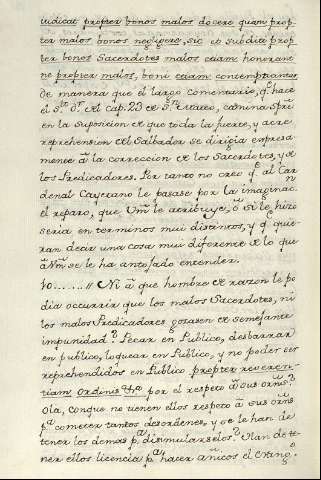 iudicat propter bonos malos docere quam prop-
ter malos bonos negligere, sic et subditi prop
ter bonos Sacerdotes malos etiam honorant
ne propter malos, boni etiam contemptantur
de manera que el largo comentario, q.e hace
el s.to D.r al Cap. 23 de S. Mateo, camina spre
en la suposicion de que toda la fuerte, y acre
reprehension del Salbador se dirigia expresa
mente â la correccion de los Sacerdotes, y de
los Predicadores. Por tanto no creo q.e al Car
denal Cayetano le pasase por la imaginac.n
el reparo, que Vm. le atribuye, ô si le hizo
seria en terminos mui distintos, y q.e quie-
ran decir una cosa mui diferente de lo que
â Vm. se le ha antojado entender.
40 ...... // Ni â que hombre de razon le po
dia occurrir que los malos Sacerdotes, ni
los malos Predicadores gozasen de semejante
impunidad? Pecar en Publico, desbarrar
en publico, loquear en Publico, y no poder ser
reprehendidos en Publico propter reveren-
tiam ordinis &.a por el respeto â sus orns?
Ola, conque no tienen ellos respeto â sus orns
p.a cometer tantos desordenes, y se le han de
tener los demas p.a disimularselos? Han de te-
ner ellos licencia p.a hacer añicos el Evang.o